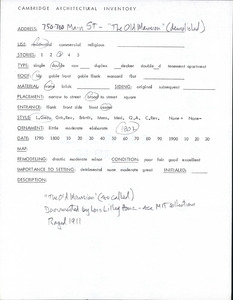 CAMBRIDGE ARCHITECTURAL INVENTORY
ADDRESS: 750-760 Main St - "The Old Mansion" (demolished)
USE: residential commercial religious
STORIES: 1 2 3 4 5
TYPE: single double row duplex decker double-d tenement apartment
ROOF: hip gable flank mansard flat
MATERIAL: frame brick SIDING: original subsequent
PLACEMENT: narrow to street broad to street square
ENTRANCE: flank front side front center
STYLE: None
ORNAMENT: little moderate elaborate 1807
DATE: 1790 1810 20 30 40 50 60 70 80 90 1900 10 20 30
MAP:
REMODELING: drastic moderate minor CONDITION: poor fair good excellent
IMPORTANCE TO SETTING: detrimental some moderate great INITIALED:
DESCRIPTION:
"The Old Mansion" (so called)
Documented by Lois Lilley Howe - see MIT collection
Razed 1911